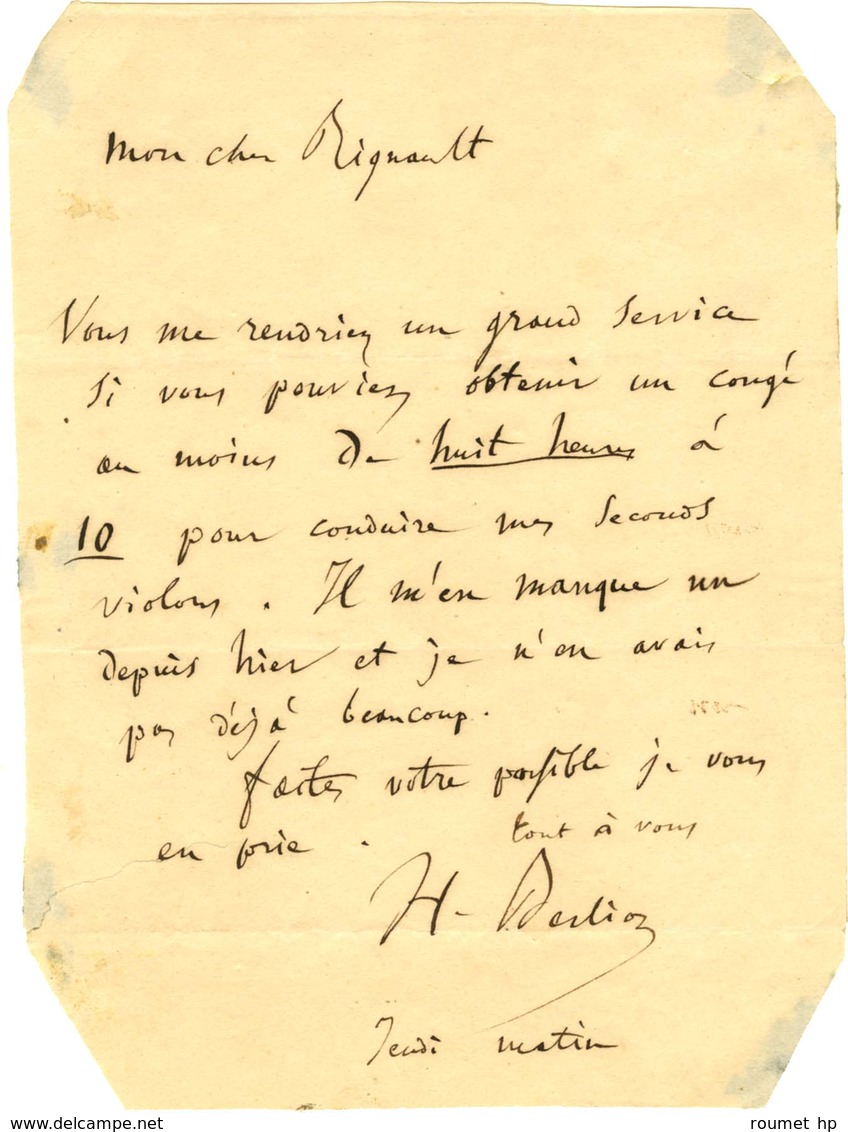 Mon cher Rignault
Vous me rendriez un grand service
Si vous pouviez obtenir un congé
au moins de huit heures à
10 pour conduire mes Seconds
violons. Il m'en manque un
depuis hier et je n'en avais
pas déjà beaucoup.
faites votre possible je vous
en prie. tout à vous
H. Berlioz
Jeudi matin
roumet hp